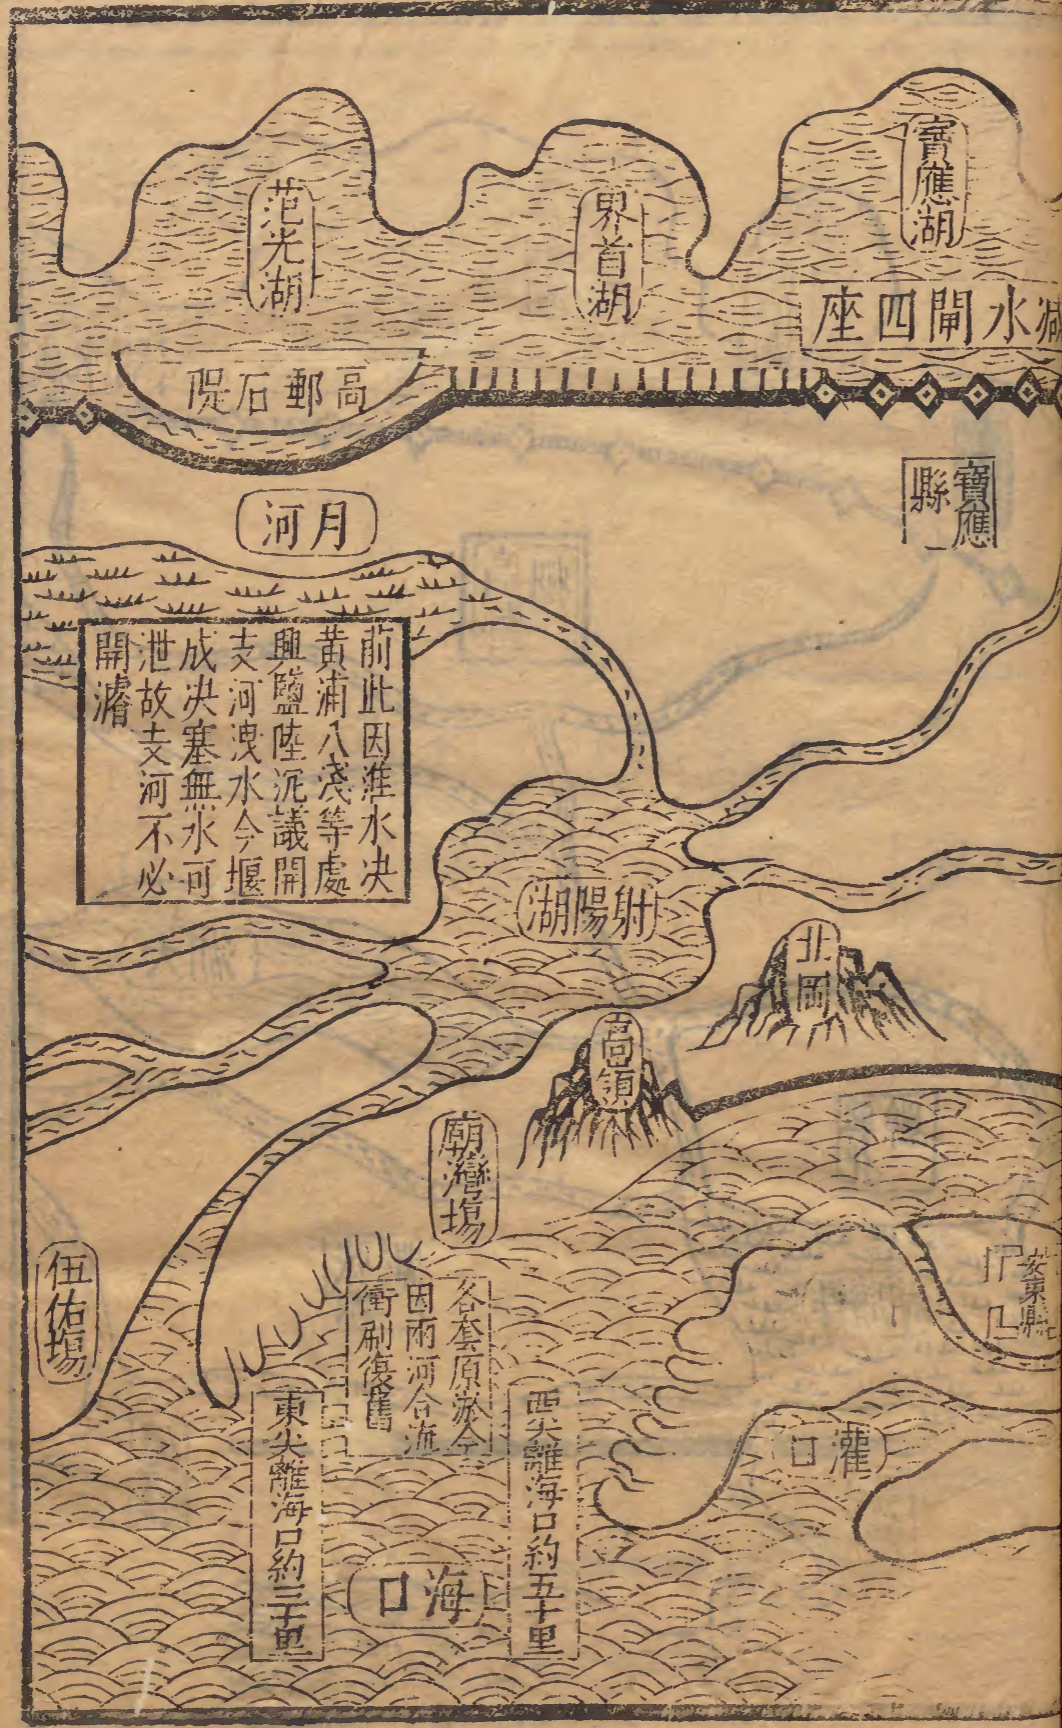 寶應湖
界首湖
范光湖
減水閘四座
高郵石隄
寶應
縣
月河
前此因淮水决
黃浦八淺等處
興鹽陸沉議開
支河洩水今堰
成决塞無水可
泄故支河不必
開濬
射陽湖
北岡
高嶺
廟灣塲
安東縣
伍佑塲
各套原淤今
因兩河合海
衝刷復舊
灌口
西尖離海口約五十里
海口
東尖離海口約三十里